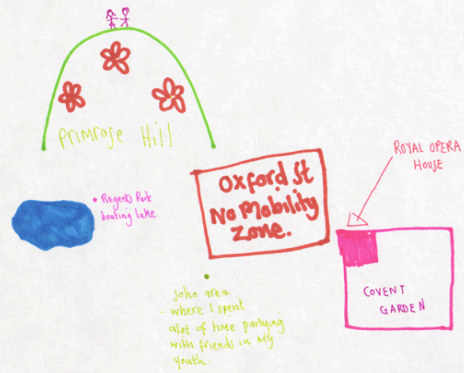 Primrose Hill
Regents Park
boating lake
Oxford St
No Mobility
Zone.
ROYAL OPERA
HOUSE
COVENT
GARDEN
Soho area
- where I spent
alot of time partying
with friends in my
youth.